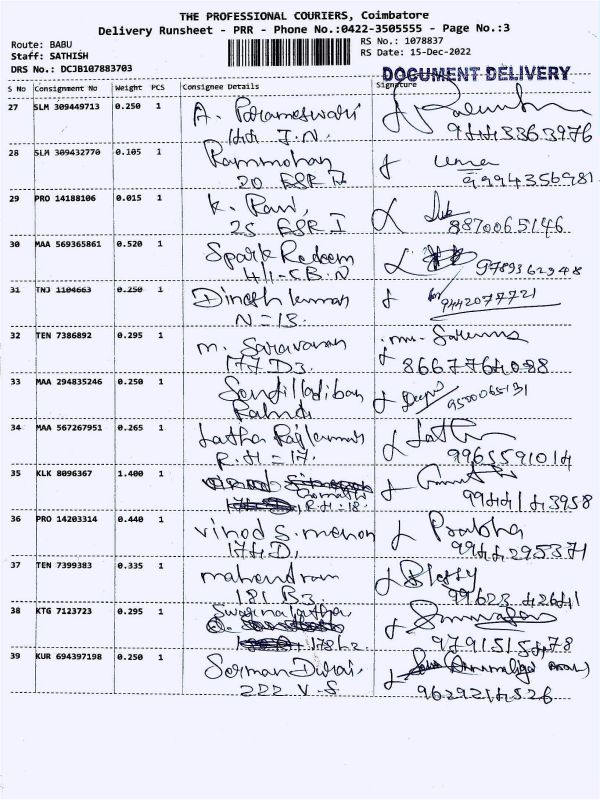 THE PROFESSIONAL COURIERS, Coimbatore
Delivery Runsheet - PRR - Phone No.:0422-3505555 - Page No.:3
Route: BABU
Staff: SATHISH
DRS No.: DCJB107883703
RS No.: 1078837
RS Date: 15-Dec-2022
DOCUMENT DELIVERY
S No Consignment No Weight PCS Consignee Details Signature
27 SLM 309449713 0.250 1 A. Parameswari
144 J.N. 9443363976
28 SLM 309432770 0.105 1 Rammohan uma
20 ESR II 9994356981
29 PRO 14188106 0.015 1 K. Ravi,
25 ESR I 8870065146
30 MAA 569365861 0.520 1 Spark Redeem
9789362948
31 TNJ 1104663 0.250 1 Dinesh kumar
N=13. 9442077721
32 TEN 7386892 0.295 1 m. Saravanan
177 D3 8667764088
33 MAA 294835246 0.250 1
9500065131
34 MAA 567267951 0.265 1 Latha Rajkumar Latha
R.H=17. 9965591014
35 KLK 8096367 1.400 1
R.H=18. 9944143958
36 PRO 14203314 0.440 1 vinod S. menon Prabha
174 D, 9944295371
37 TEN 7399383 0.335 1 mahendran Blessy
181 B3 9962342641
38 KTG 7123723 0.295 1 Swarnalatha
178 L2 9791515478
39 KUR 694397198 0.250 1 Durai,
222 V-S 9629214526